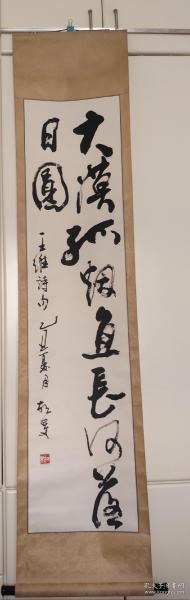 大漠孤烟直長河落
日圓
王維詩句 乙丑夏月